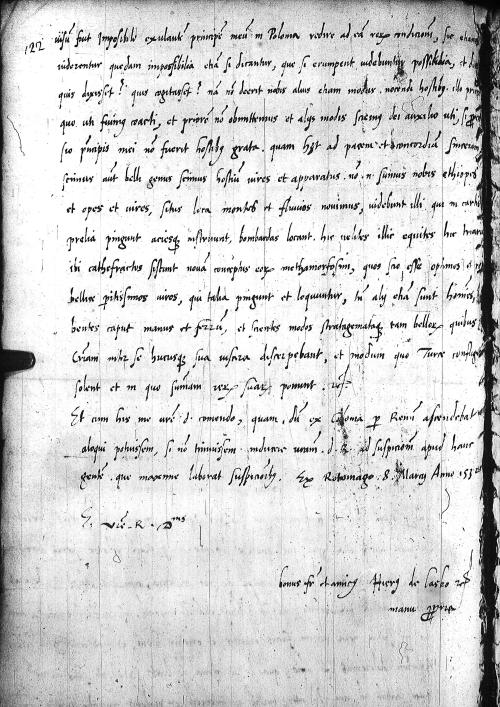 122
visum fuit Impossibile exulantē principē meū in Polonia redire ad eā rerū condicionē, sic etiam
viderentur quedam impossibilia etiā si dicantur, que se erumpent videbuntur possibilia, et
quis dixisset? quis cogitasset? nā nō deerit nobis alius etiam modus nocendi hostibus. illo
quo uti fuimus coacti, et priorē nō obmittemus et alijs modis sciemus dei auxilio uti, si
sio principis mei nō fuerit hostibus grata. quam habet ad pacem et concordiam sinceram
scimus aut belli genus scimus hostiū vires et apparatus. nō n. sumus nobis ethiopes
et opes et vires, situs loca montes et fluvios novimus, videbunt illi qui in cartis
prelia pingunt aciesque instruunt, bombardas locant. hic velites illic equites hic
ibi cathefractos sistunt novā conceptus eorū methamorfosim, quos scio esse optimos et
bellice peritissimos viros, qui talia pingunt et loquuntur, tū alij etiā sunt homines,
bentes caput manus et ferrū, et scientes modos stratagemataque tam bellorū quibus
Criam inter se hucusque sua viscera discerpebant, et modum quo Turce confligere
solent et in quo summam rerū suarū ponunt.
Et cum his me vre. d. comendo, quam, dū ex Colonia per Renū ascendebat
aloqui potuissem, si nō timuissem inducere vram. d. R. ad suspicionē apud hanc
gentē. que maxime laborat suspicionibus. Ex Rotomago. 8. Marcij Anno 15
E. vre. R. Dnis
bonus fr et amicus Hierus de Lasko
manu ppria